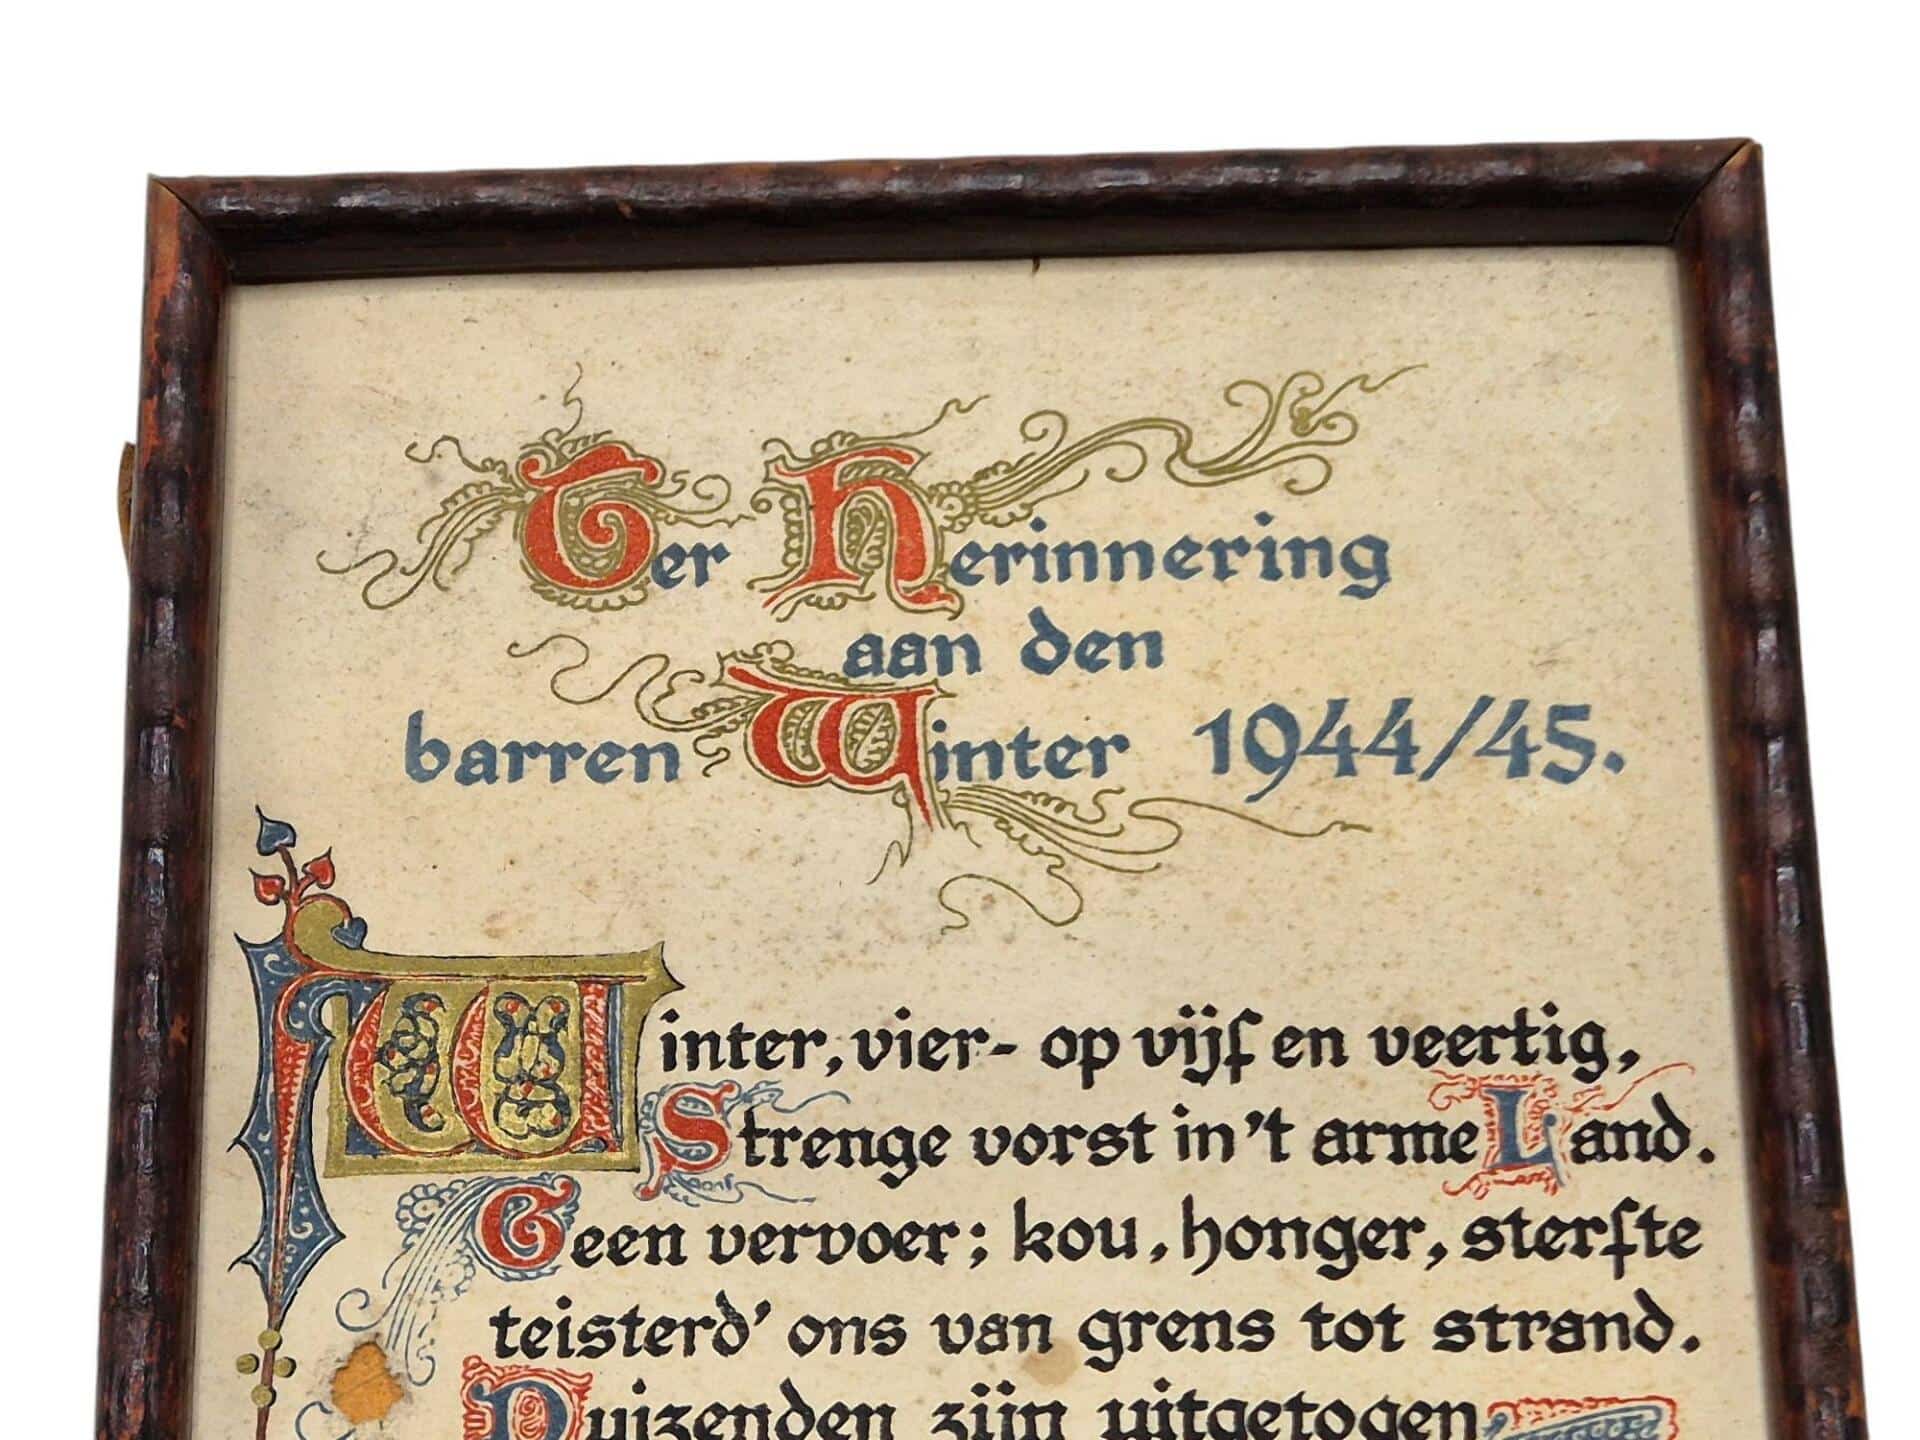 Ter Herinnering
aan den
barren Winter 1944/45.
Winter, vier- op vijf en veertig,
Strenge vorst in 't arme Land.
Geen vervoer; kou, honger, sterfte
teisterd' ons van grens tot strand.
Duizenden zijn uitgetogen